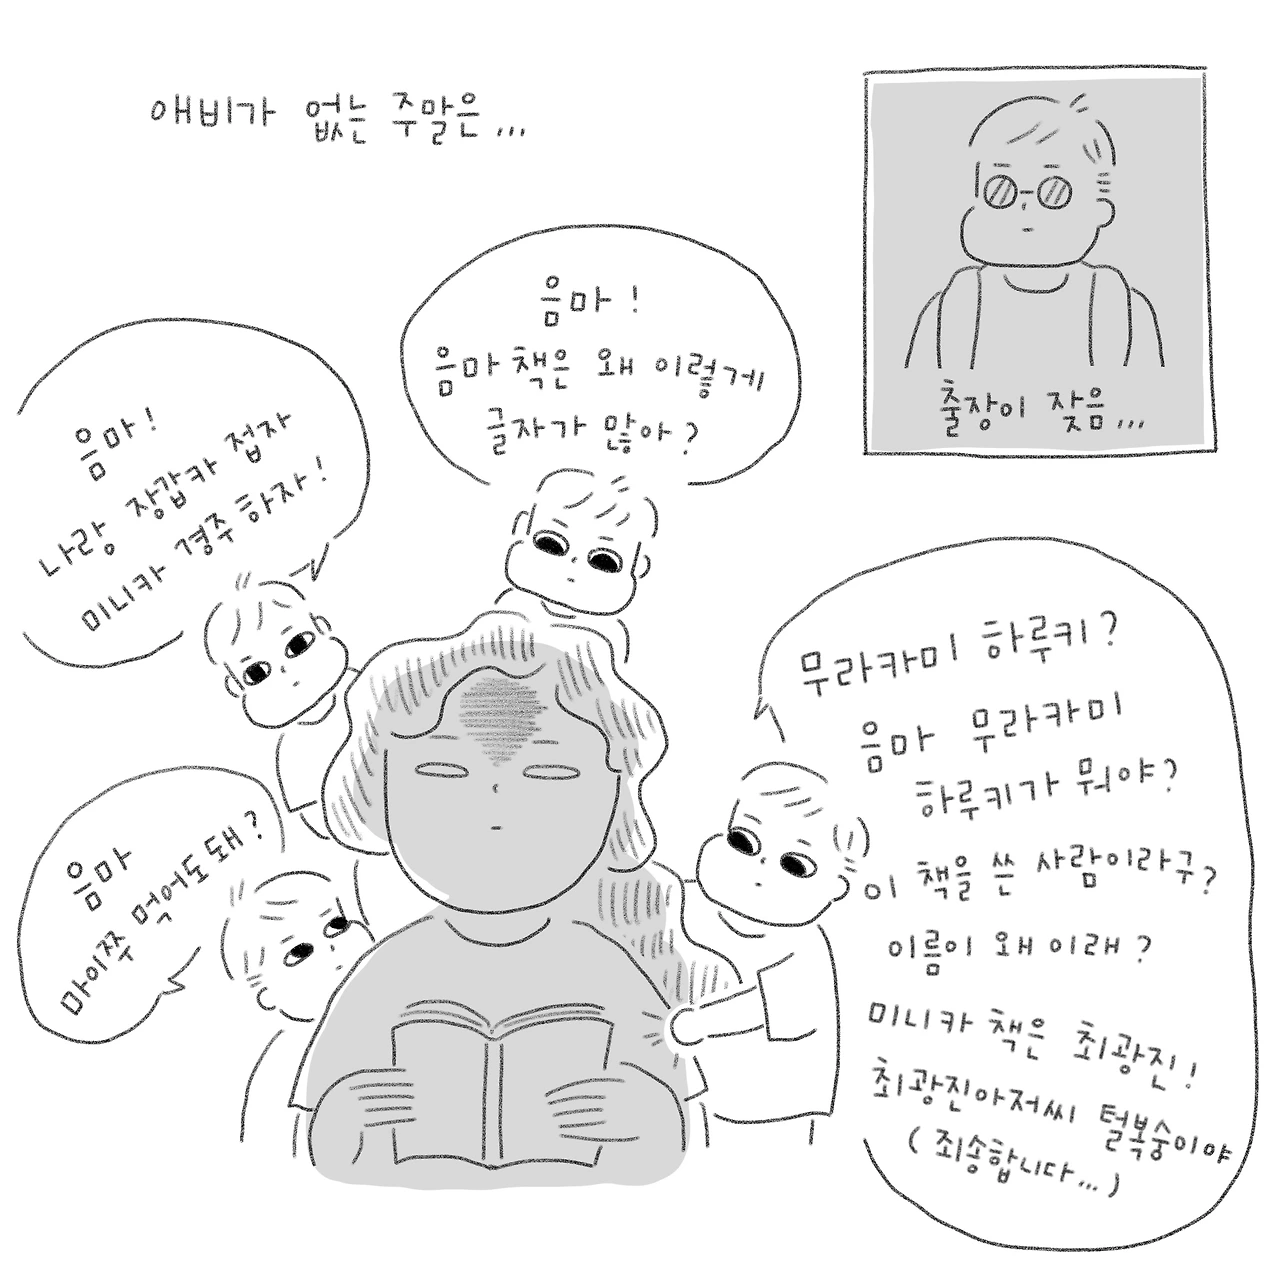 애비가 없는 주말은...
출장이 잦음...
음마!
음마 책은 왜 이렇게
글자가 많아?
음마!
나랑 장갑카 접자
미니카 경주 하자!
음마
마이쭈 먹어도 돼?
무라카미 하루키?
음마 무라카미
하루키가 뭐야?
이 책을 쓴 사람이라구?
이름이 왜 이래?
미니카 책은 최광진!
최광진아저씨 털복숭이야
(죄송합니다...)